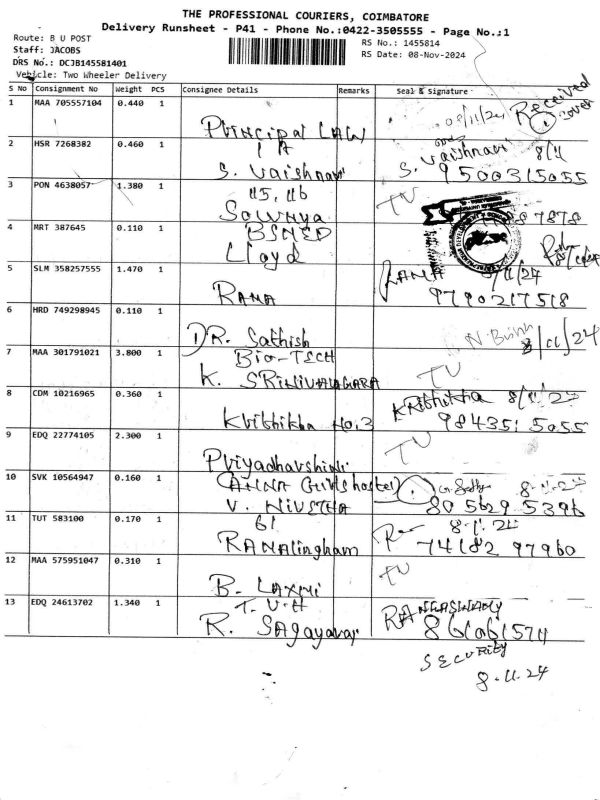 THE PROFESSIONAL COURIERS, COIMBATORE
Delivery Runsheet - P41 - Phone No.:0422-3505555 - Page No.:1
Route: B U POST
RS No.: 1455814
Staff: JACOBS
RS Date: 08-Nov-2024
DRS No.: DCJB145581401
Vehicle: Two Wheeler Delivery
S No Consignment No Weight PCS Consignee Details Remarks Seal & Signature
1 MAA 705557104 0.440 1 Principal LAW 08/11/24 Received cover
2 HSR 7268382 0.460 1 S. Vaishnavi S. Vaishnavi 8/11
9500315055
3 PON 4638057 1.380 1 115, 116
Sowmya TV 7878
4 MRT 387645 0.110 1 BSMED
Lloyd
5 SLM 358257555 1.470 1 RANA RANA 8/11/24
9790217518
6 HRD 749298945 0.110 1 DR. Sathish 8/11/24
7 MAA 301791021 3.800 1 Bio-TECH
K. TV
8 CDM 10216965 0.360 1 Krithikha NO.3 KRithikha
984351 5055
9 EDQ 22774105 2.300 1 Priyadharshini TV
10 SVK 10564947 0.160 1 ANNA Girls hostel
V. NIVETHA 80 5629 5396
11 TUT 583100 0.170 1 61
RAMAlingham
74182 97960
12 MAA 575951047 0.310 1 B. LAXMI TV
13 EDQ 24613702 1.340 1 T.V.H
R. SAgayaraj RANGASWAMY
SECURITY
8.11.24